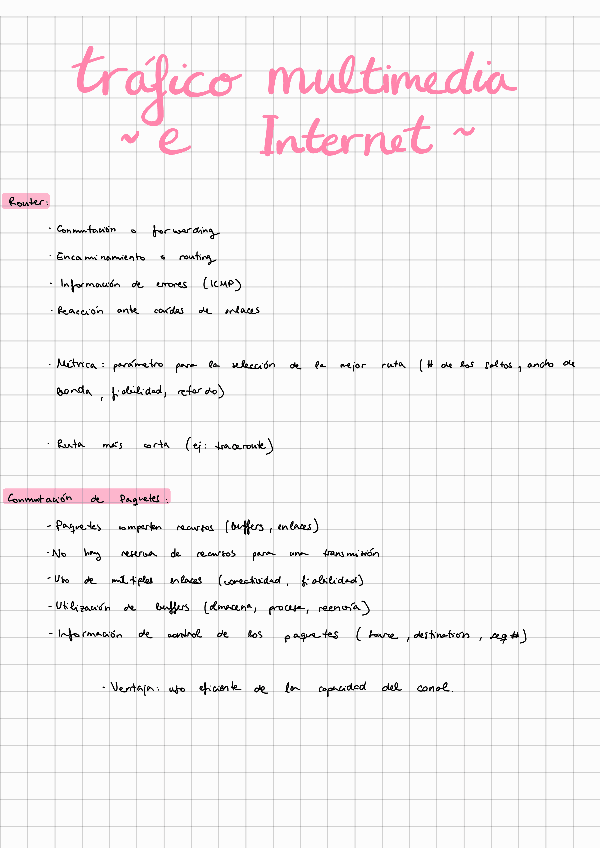 tráfico multimedia
~ e Internet ~
Router:
· Conmutación o forwarding
· Encaminamiento o routing
· Información de errores (ICMP)
· Reacción ante caídas de enlaces
· Métrica: parámetro para la selección de la mejor ruta (# de los saltos, ancho de
banda, fiabilidad, retardo)
· Ruta más corta (ej: traceroute)
Conmutación de Paquetes:
- Paquetes comparten recursos (buffers, enlaces)
- No hay reserva de recursos para una transmisión
- Uso de múltiples enlaces (conectividad, fiabilidad)
- Utilización de buffers (almacena, procesa, reenvía)
- Información de control de los paquetes (source, destination, seq#)
· Ventaja: uso eficiente de la capacidad del canal.